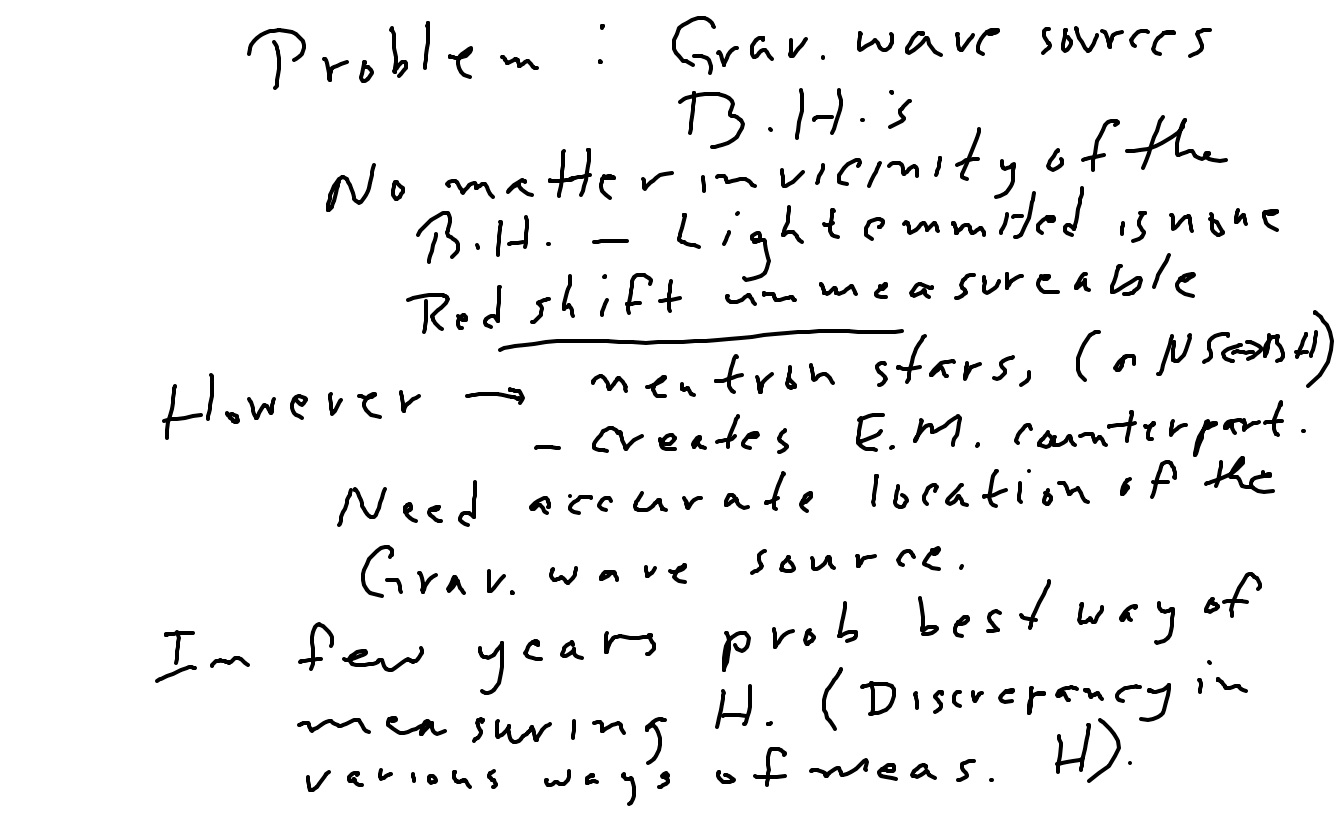 Problem : Grav. wave sources
B.H.'s
No matter in vicinity of the
B.H. – Light emmitted is none
Redshift unmeasureable
However → neutron stars, (or NS↔BH)
– creates E.M. counterpart.
Need accurate location of the
Grav. wave source.
In few years prob best way of
measuring H. (Discrepancy in
various ways of meas. H).